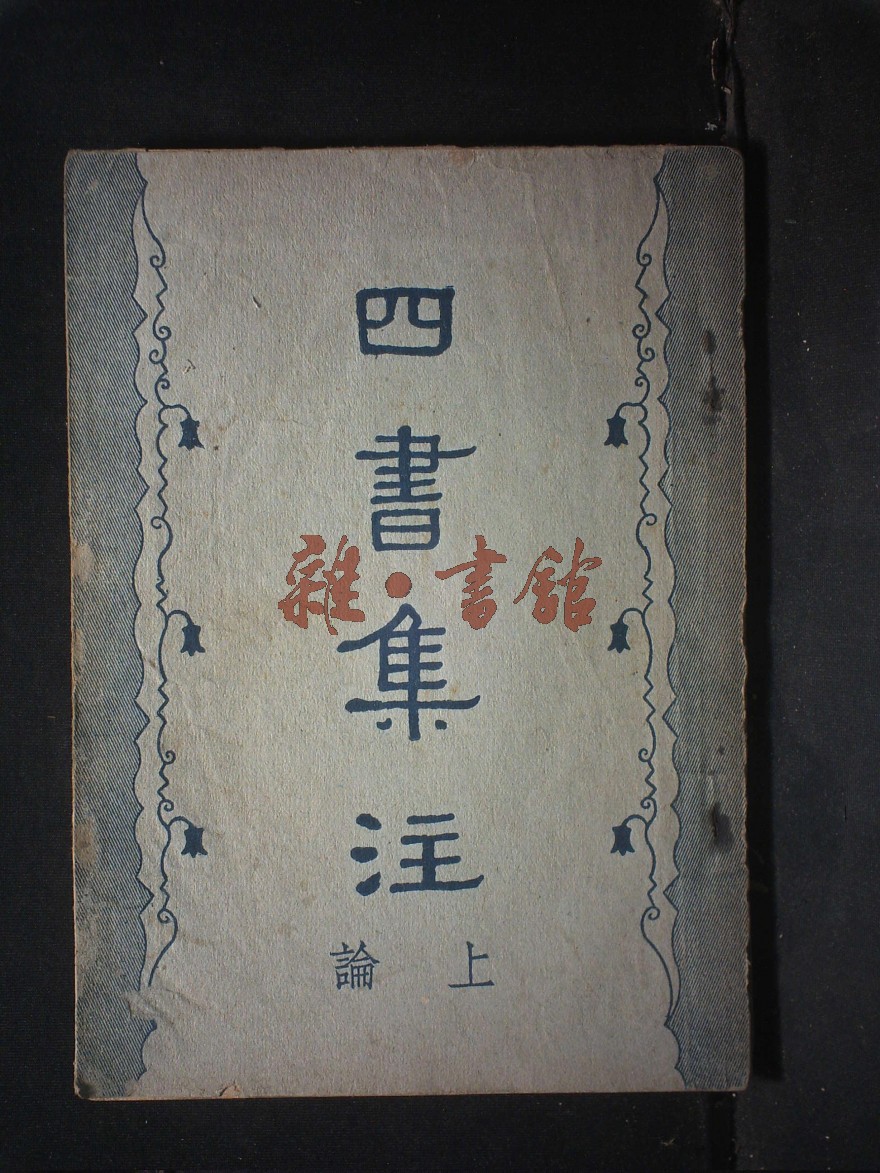 四書集注
上論
雜·書館